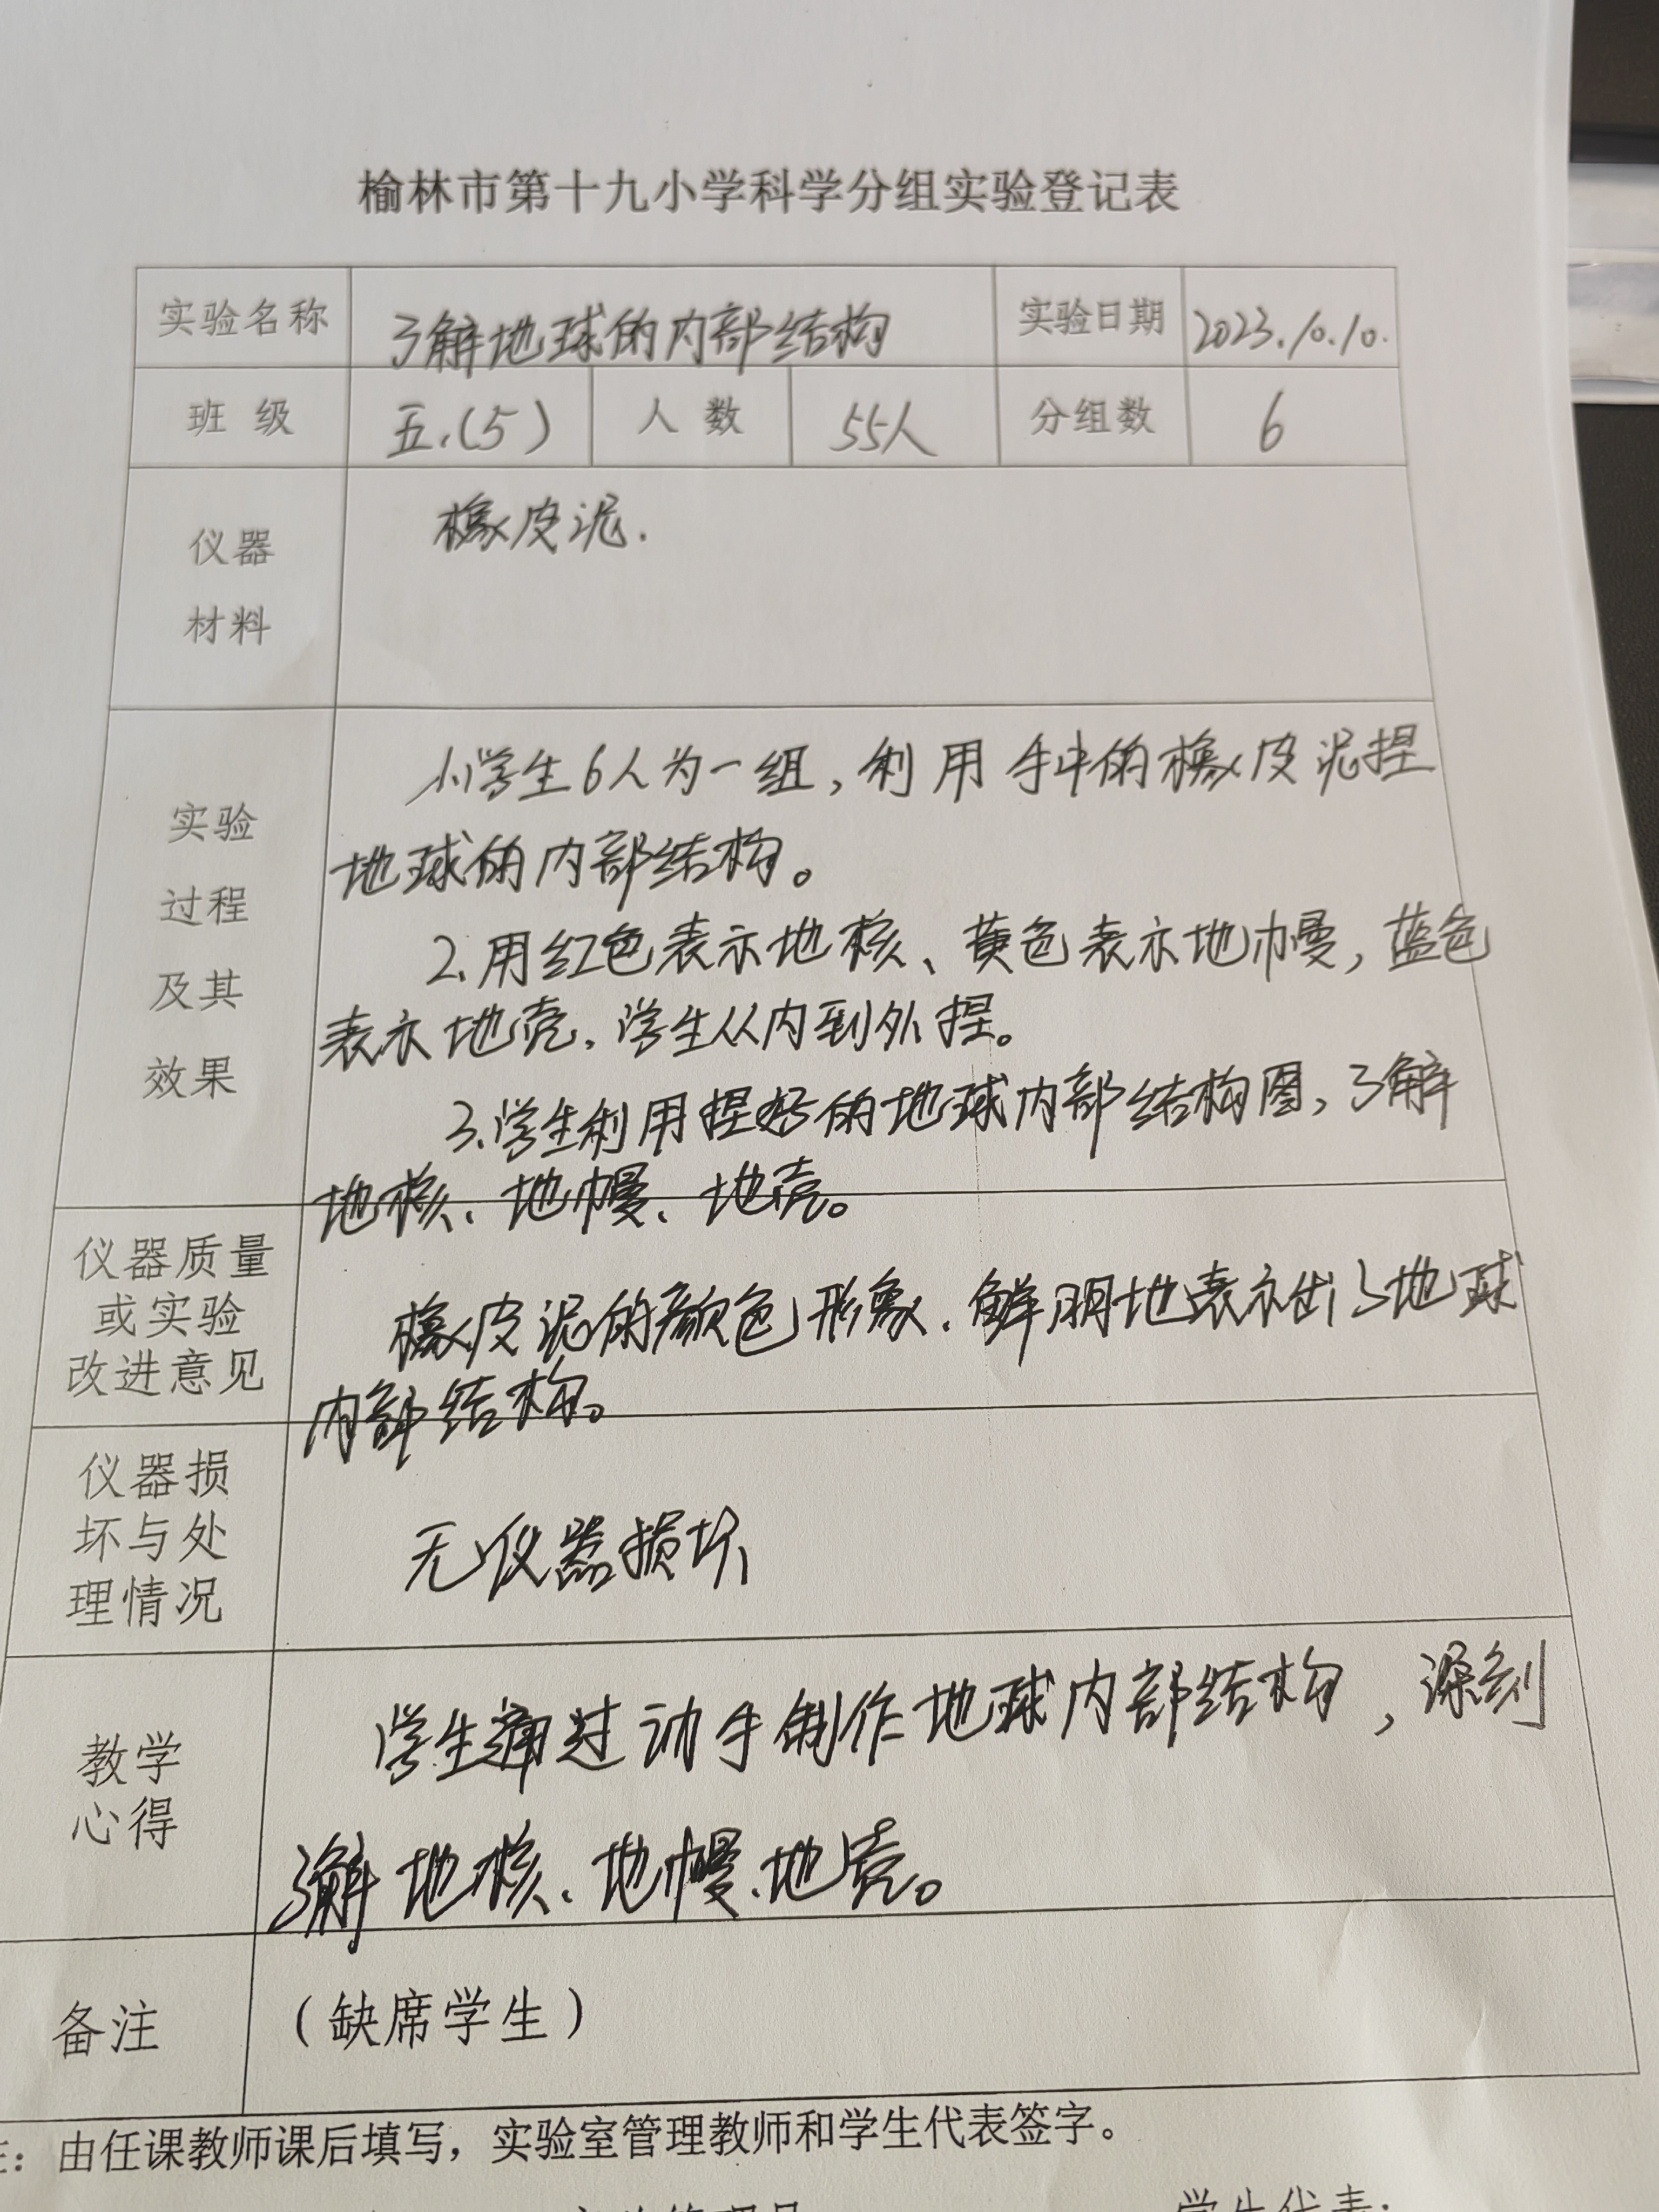 榆林市第十九小学科学分组实验登记表
实验名称 了解地球的内部结构 实验日期 2023.10.10.
班 级 五.(5) 人 数 55人 分组数 6
仪器
材料
橡皮泥.
实验
过程
及其
效果
1、学生6人为一组,利用手中的橡皮泥捏
地球的内部结构。
2、用红色表示地核、黄色表示地幔,蓝色
表示地壳,学生从内到外捏。
3、学生利用捏好的地球内部结构图,了解
地核、地幔、地壳。
仪器质量
或实验
改进意见
橡皮泥的颜色形象、鲜明地表示出了地球
内部结构。
仪器损
坏与处
理情况
无仪器损坏
教学
心得
学生通过动手制作地球内部结构,深刻
了解地核、地幔、地壳。
备注
(缺席学生)
注:由任课教师课后填写,实验室管理教师和学生代表签字。
学生代表: